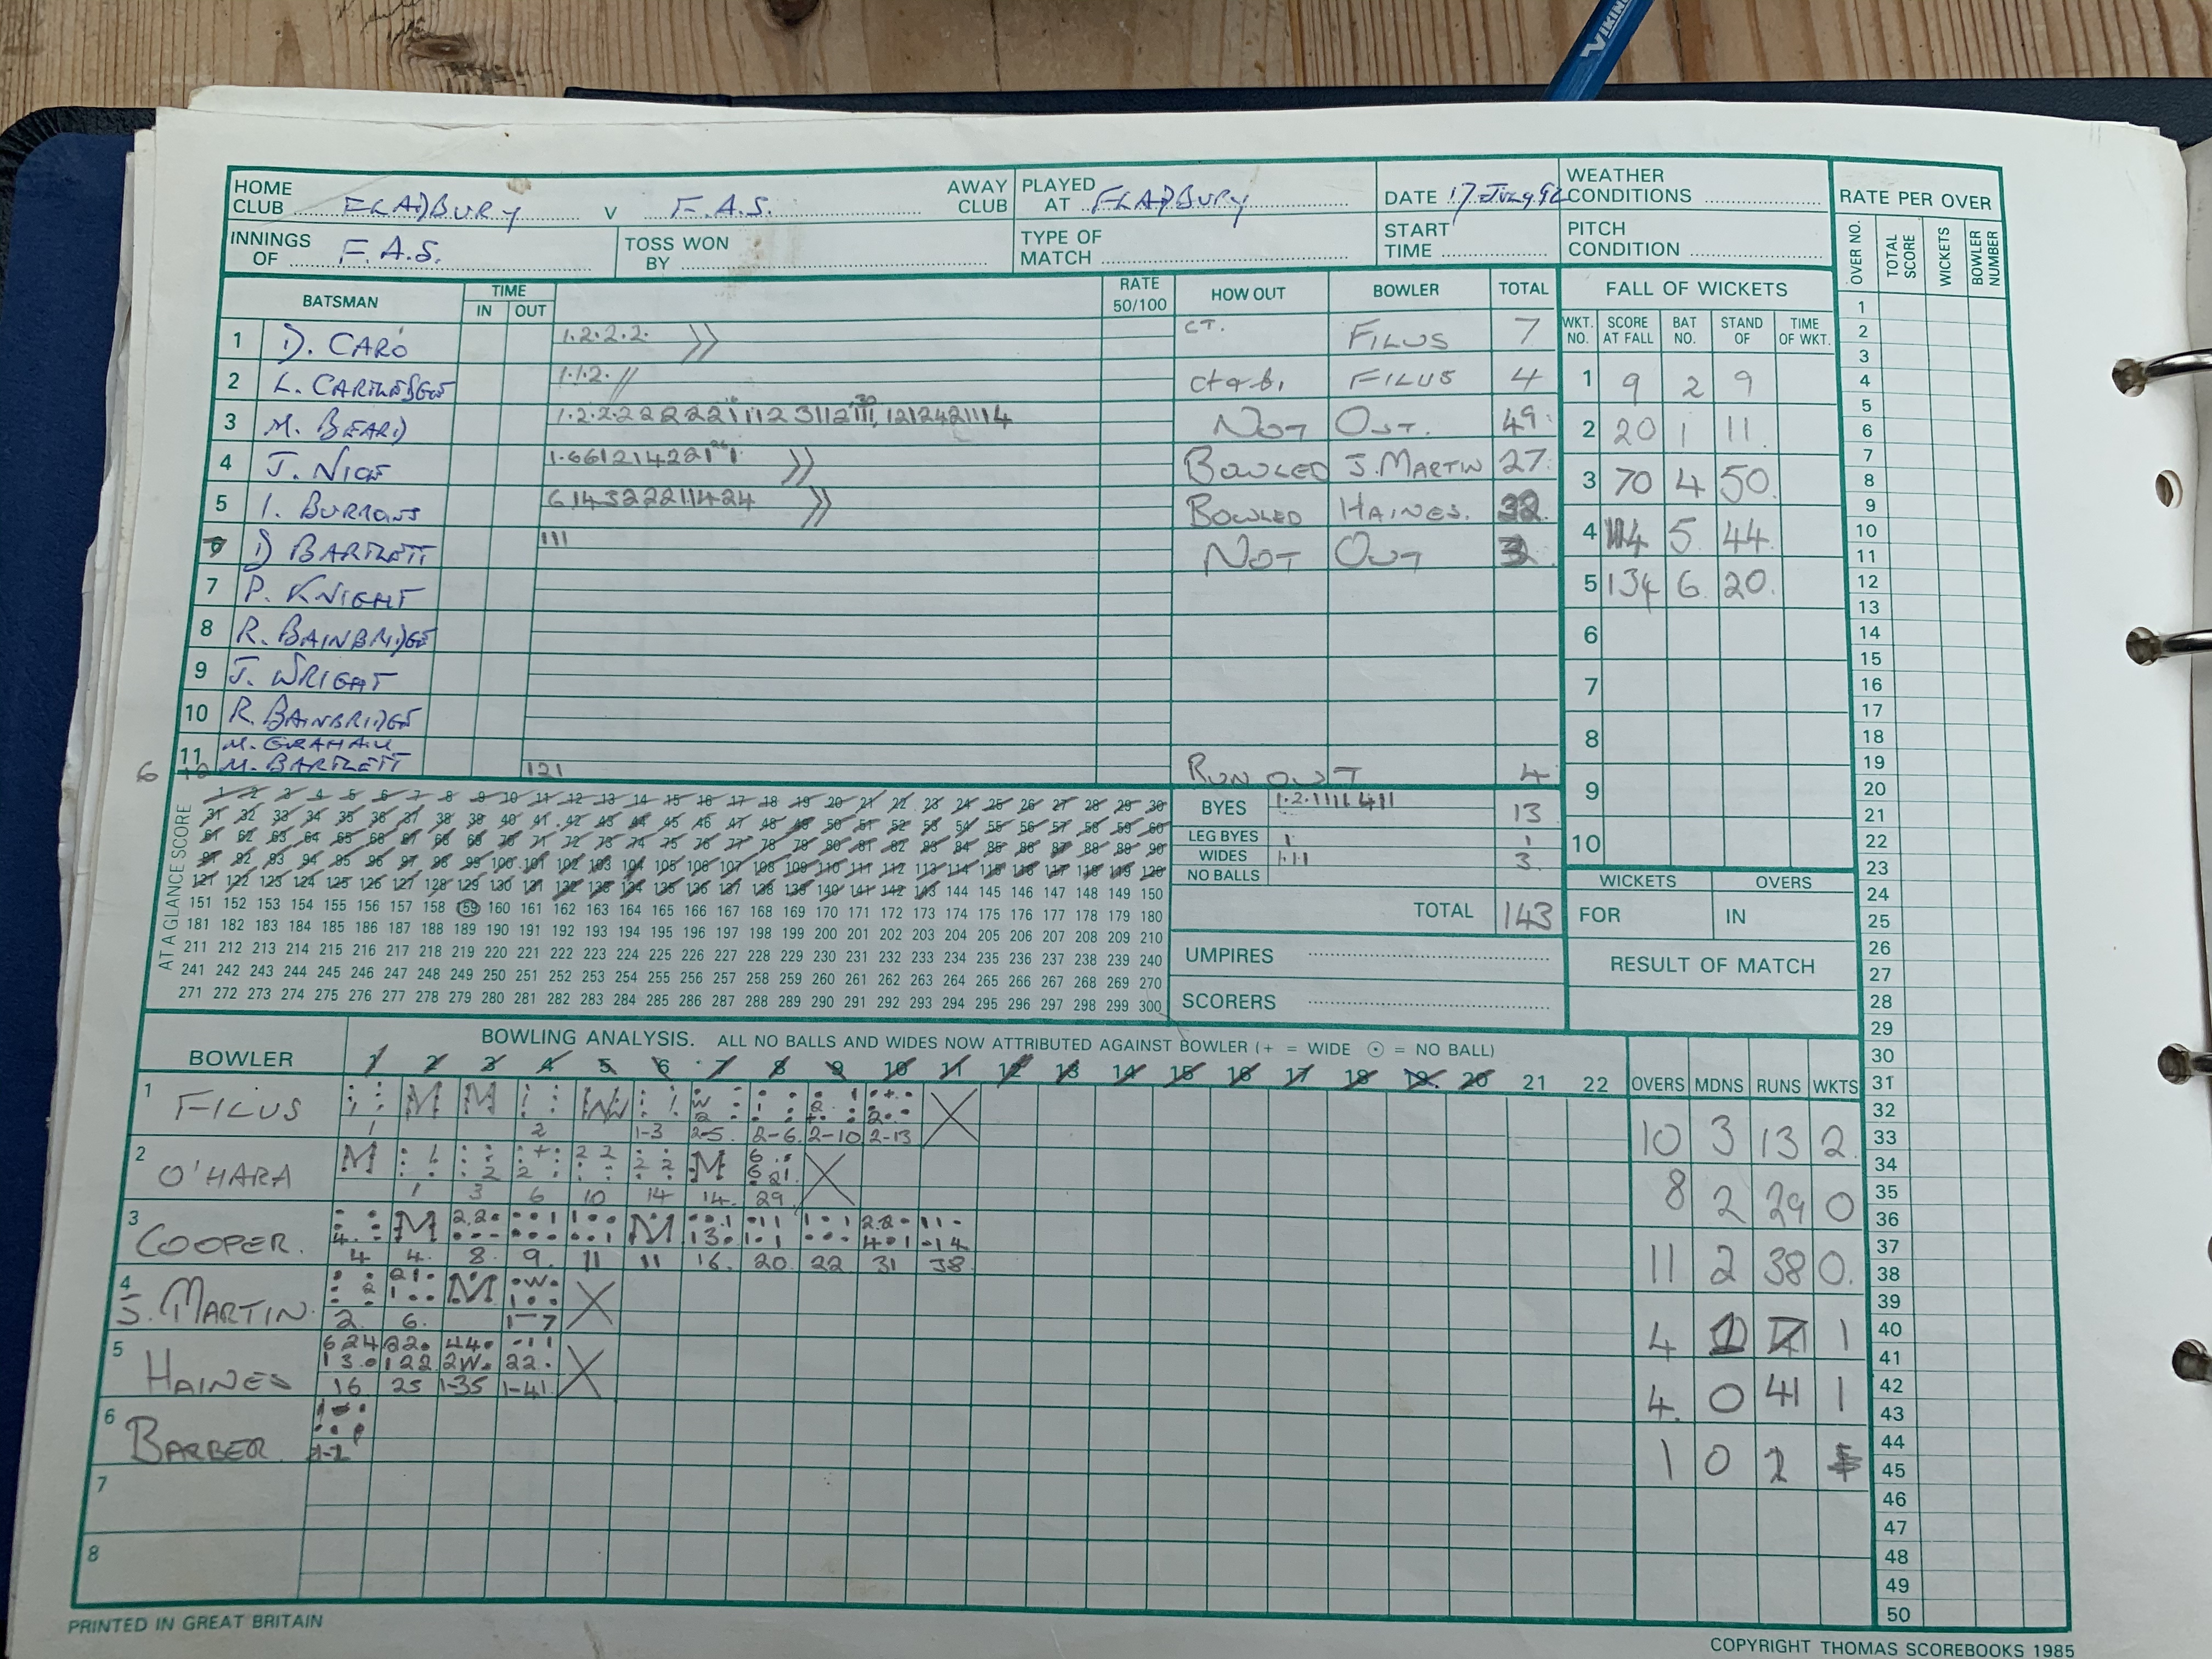 VIKING
HOME CLUB FLADBURY v F.A.S. AWAY CLUB PLAYED AT FLADBURY DATE 17 July 92 WEATHER CONDITIONS
INNINGS OF F.A.S. TOSS WON BY TYPE OF MATCH START TIME PITCH CONDITION
RATE PER OVER
OVER NO. TOTAL SCORE WICKETS BOWLER NUMBER
BATSMAN TIME IN OUT RATE 50/100 HOW OUT BOWLER TOTAL
FALL OF WICKETS
WKT. NO. SCORE AT FALL BAT NO. STAND OF TIME OF WKT.
1 D. CARO 1.2.2.2. CT. FILUS 7
2 L. CARTLEDGE 1.1.2. ct & b. FILUS 4
3 M. BEARD NOT OUT. 49
4 J. NICE BOWLED J. MARTIN 27
5 I. BURROWS 614322211424 BOWLED HAINES. 32
6 D BARTLETT 111 NOT OUT 3
7 P. KNIGHT
8 R. BAINBRIDGE
9 J. WRIGHT
10 R. BAINBRIDGE
M. GRAHAM
11 M. BARTLETT 121 RUN OUT 4
6
1 9 2 9
2 20 1 11
3 70 4 50
4 114 5 44
5 134 6 20
6
7
8
9
10
AT A GLANCE SCORE
1 2 3 4 5 6 7 8 9 10 11 12 13 14 15 16 17 18 19 20 21 22 23 24 25 26 27 28 29 30
31 32 33 34 35 36 37 38 39 40 41 42 43 44 45 46 47 48 49 50 51 52 53 54 55 56 57 58 59 60
61 62 63 64 65 66 67 68 69 70 71 72 73 74 75 76 77 78 79 80 81 82 83 84 85 86 87 88 89 90
91 92 93 94 95 96 97 98 99 100 101 102 103 104 105 106 107 108 109 110 111 112 113 114 115 116 117 118 119 120
121 122 123 124 125 126 127 128 129 130 131 132 133 134 135 136 137 138 139 140 141 142 143 144 145 146 147 148 149 150
151 152 153 154 155 156 157 158 159 160 161 162 163 164 165 166 167 168 169 170 171 172 173 174 175 176 177 178 179 180
181 182 183 184 185 186 187 188 189 190 191 192 193 194 195 196 197 198 199 200 201 202 203 204 205 206 207 208 209 210
211 212 213 214 215 216 217 218 219 220 221 222 223 224 225 226 227 228 229 230 231 232 233 234 235 236 237 238 239 240
241 242 243 244 245 246 247 248 249 250 251 252 253 254 255 256 257 258 259 260 261 262 263 264 265 266 267 268 269 270
271 272 273 274 275 276 277 278 279 280 281 282 283 284 285 286 287 288 289 290 291 292 293 294 295 296 297 298 299 300
BYES 1.2.1111411 13
LEG BYES 1 1
WIDES 1.1.1 3
NO BALLS
TOTAL 143
UMPIRES
SCORERS
WICKETS OVERS
FOR IN
RESULT OF MATCH
BOWLING ANALYSIS. ALL NO BALLS AND WIDES NOW ATTRIBUTED AGAINST BOWLER (+ = WIDE ⊙ = NO BALL)
BOWLER 1 2 3 4 5 6 7 8 9 10 11 12 13 14 15 16 17 18 19 20 21 22 OVERS MDNS RUNS WKTS
1 FILUS 1 M M 2 W 1-3 2-5. 2-6 2-10 2-13 10 3 13 2
2 O'HARA M 1 3 6 10 14 M 14. 29 8 2 29 0
3 COOPER. 4 M 4. 8. 9. 11 M 11 16. 20 22 31 38 11 2 38 0.
4 J. MARTIN. 2. 6. M 1-7 4 1 7 1
5 HAINES 16 25 1-35 1-41 4. 0 41 1
6 BARBER 1 0 2
7
8
1
2
3
4
5
6
7
8
9
10
11
12
13
14
15
16
17
18
19
20
21
22
23
24
25
26
27
28
29
30
31
32
33
34
35
36
37
38
39
40
41
42
43
44
45
46
47
48
49
50
PRINTED IN GREAT BRITAIN
COPYRIGHT THOMAS SCOREBOOKS 1985